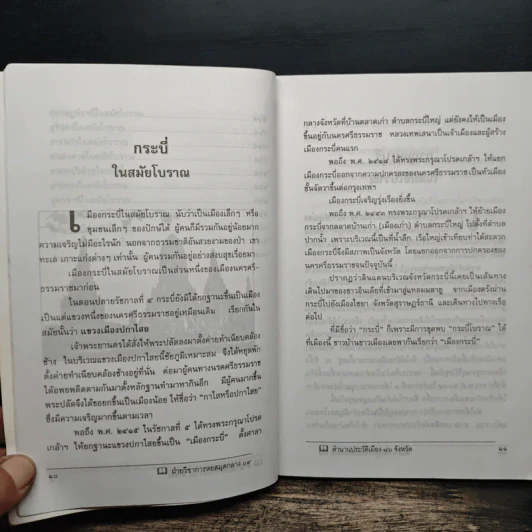 กระบี่
ในสมัยโบราณ
เมืองกระบี่ในสมัยโบราณ นับว่าเป็นเมืองเล็กๆ หรือ
ชุมชนเล็กๆ ของปักษ์ใต้ ผู้คนก็มีรวมกันอยู่น้อยมาก
ความเจริญไม่มีอะไรนัก นอกจากธรรมชาติอันสวยงามของป่า เขา
ทะเล เกาะแก่งต่างๆ เท่านั้น ผู้คนรวมกันอยู่อย่างสงบสุขเรื่อยมา
เมืองกระบี่ในสมัยโบราณเป็นส่วนหนึ่งของเมืองนครศรี-
ธรรมราชมาก่อน
ในตอนปลายรัชกาลที่ ๔ กระบี่ยังมิได้ยกฐานะขึ้นเป็นเมือง
เป็นแต่แขวงหนึ่งของนครศรีธรรมราชอยู่เหมือนเดิม เรียกกันใน
สมัยนั้นว่า แขวงเมืองปกาไสย
เจ้าพระยานครได้สั่งให้พระปลัดลงมาตั้งค่ายทำเนียบคล้อง
ช้าง ในบริเวณแขวงเมืองปกาไสยนี้ชัยภูมิเหมาะสม จึงได้หยุดพัก
ตั้งค่ายทำเนียบคล้องช้างอยู่ที่นั่น ต่อมาผู้คนทางนครศรีธรรมราช
ได้อพยพติดตามกันมาตั้งหลักฐานทำมาหากินอีก มีผู้คนมากขึ้น
พระปลัดจึงได้ขอยกขึ้นเป็นเมืองน้อย ให้ชื่อว่า "กาไสหรือปกาไสย"
ซึ่งมีความเจริญมากขึ้นตามเวลา
พอถึง พ.ศ. ๒๔๑๕ ในรัชกาลที่ ๕ ได้ทรงพระกรุณาโปรด
เกล้าฯ ให้ยกฐานะแขวงปกาไสยขึ้นเป็น "เมืองกระบี่" ตั้งศาลา
๑๐ ฝ่ายวิชาการหอสมุดกลาง ๐๙
กลางจังหวัดที่บ้านตลาดเก่า ตำบลกระบี่ใหญ่ แต่ยังคงให้เป็นเมือง
ขึ้นอยู่กับนครศรีธรรมราช หลวงเทพเสนาเป็นเจ้าเมืองและผู้สร้าง
เมืองกระบี่คนแรก
พอถึง พ.ศ. ๒๔๑๘ ได้ทรงพระกรุณาโปรดเกล้าฯ ให้แยก
เมืองกระบี่ออกจากความปกครองของนครศรีธรรมราชเป็นหัวเมือง
ชั้นจัตวาขึ้นต่อกรุงเทพฯ
เมืองกระบี่เจริญรุ่งเรืองยิ่งขึ้น
พอถึง พ.ศ. ทรงพระกรุณาโปรดเกล้าฯ ให้ย้ายเมือง
กระบี่จากตลาดบ้านเก่า (เมืองเก่า) ตำบลกระบี่ใหญ่ ไปตั้งที่ตำบล
ปากน้ำ เพราะบริเวณนี้เป็นที่น้ำลึก เรือใหญ่เข้าเทียบท่าได้สะดวก
เมืองกระบี่จึงมีสภาพเป็นจังหวัด โดยแยกออกจากการปกครองของ
นครศรีธรรมราชจนปัจจุบันนี้
ปรากฏว่าดินแดนบริเวณจังหวัดกระบี่นี้เคยเป็นเส้นทาง
เดินไปมาของชาวอินเดียที่เข้ามาสู่แหลมมลายู จากเมืองตรังผ่าน
กระบี่ไปยังเมืองไชยา จังหวัดสุราษฎร์ธานี และเดินทางไปทางเรือ
ต่อไป
ที่มีชื่อว่า "กระบี่" ก็เพราะมีการขุดพบ "กระบี่โบราณ" ได้
ที่เมืองนี้ ชาวบ้านชาวเมืองเลยพากันเรียกว่า "เมืองกระบี่"
ตำนานประวัติเมือง ๗๖ จังหวัด ๑๑